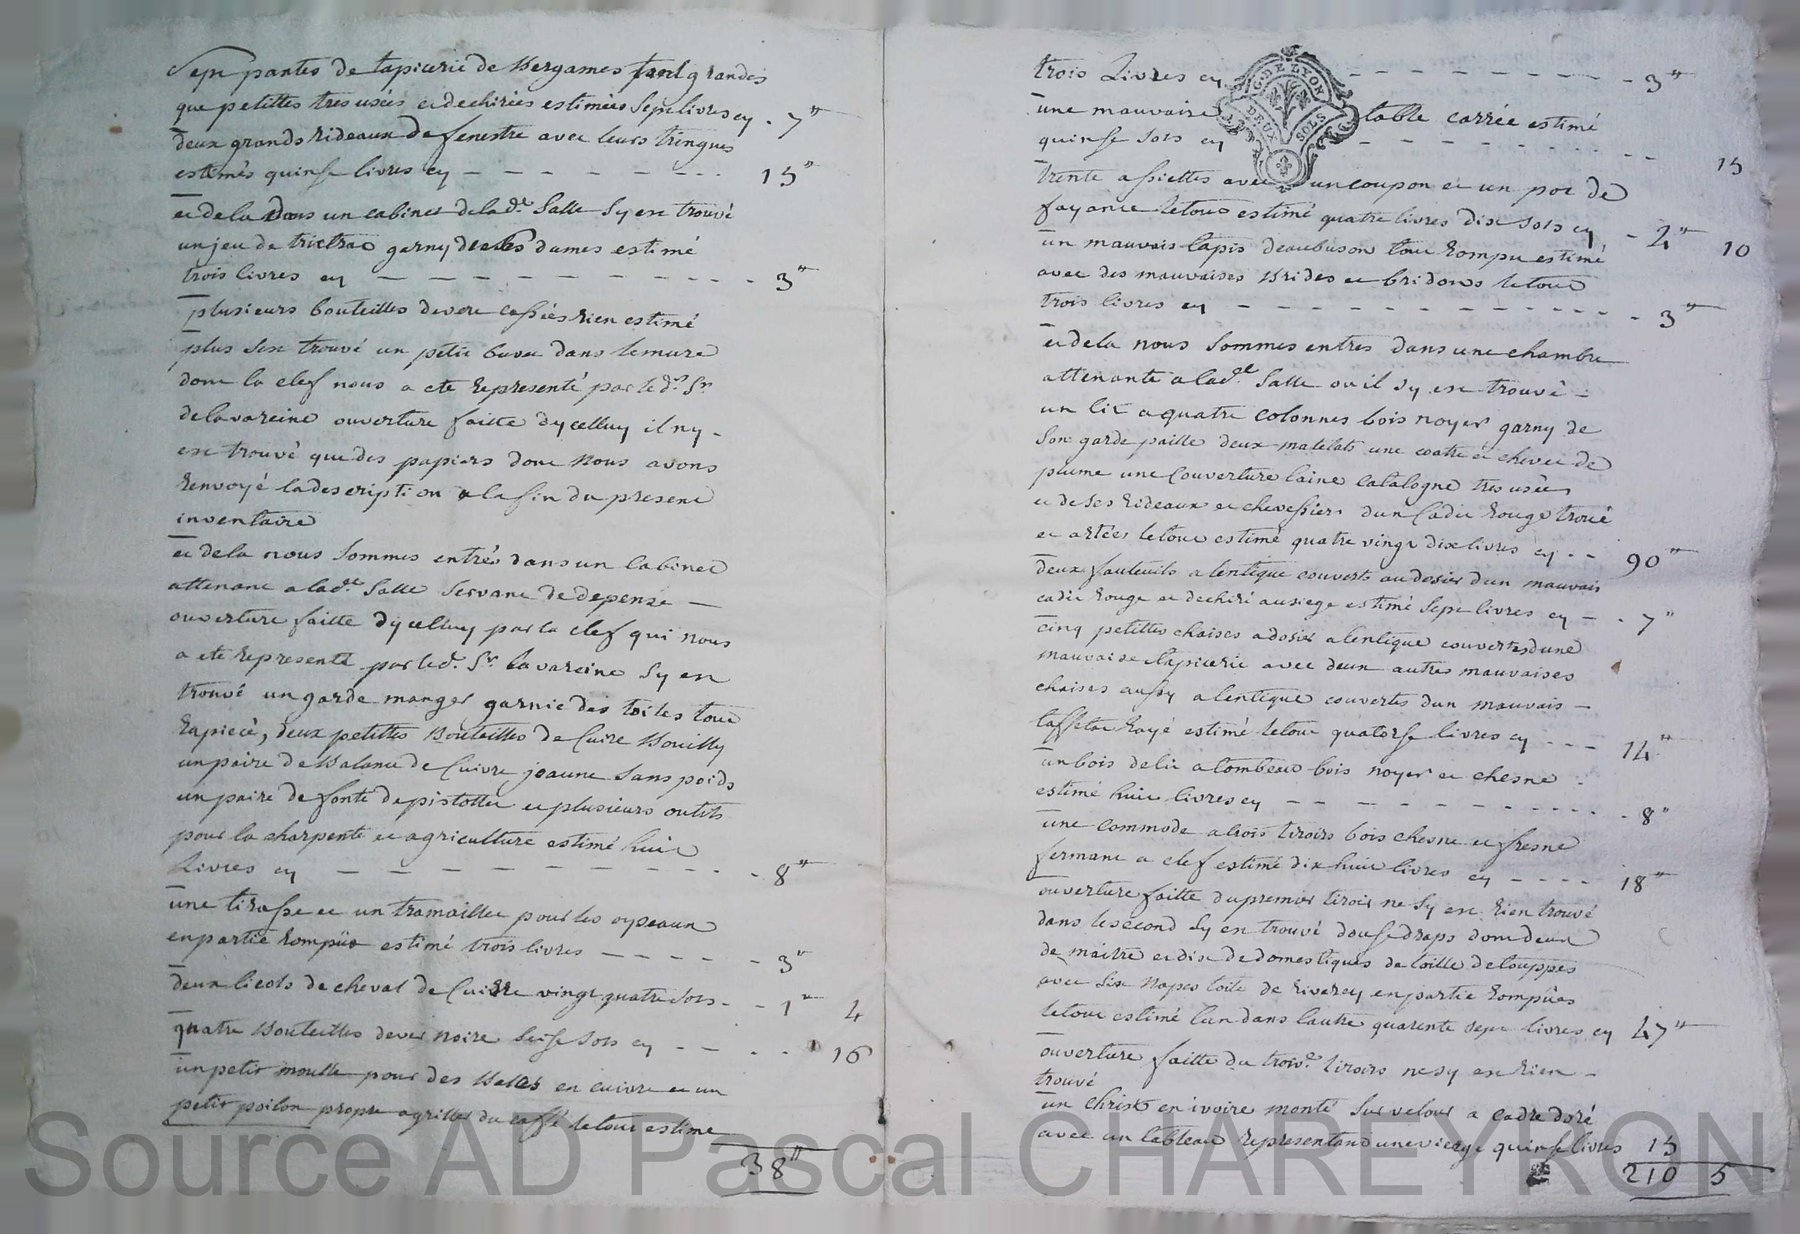 Sept pantes de tapicerie de Bergames tant grandes
que petittes tres usées et dechirées estimées sept livres cy - 7"
deux grands rideaux de fenestre avec leurs tringues
estimés quinse livres cy - - - - - - - - 15"
et de la dans un cabinet de lad.e Salle Sy est trouvé
un jeu de trictrac garny de ses dames estimé
trois livres cy - - - - - - - - - - 3"
plusieurs bouteilles de vere cassées rien estimé
plus S'est trouvé un petit buvet dans le mure
dont la clef nous a eté representé par le d.t S.r
de lavareine ouverture faitte dycelluy il ny -
est trouvé que des papiers dont nous avons
renvoyé la description a la fin du present
inventaire
et de la nous sommes entrés dans un Cabinet
attenant a lad.e Salle Servant de depense -
ouverture faitte dycelluy par la clef qui nous
a eté representé par le d. S.r lavareine Sy est
trouvé un garde manger garnie des toiles tout
rapiecé, deux petittes Bouteilles de Cuire Bouilly
un paire de Balance de Cuivre joaune Sans poids
un paire de fonte de pistollet et plusieurs outils
pour la charpente et agriculture estimé huit
Livres cy - - - - - - - - - - - 8"
une tirasse et un tramaillet pour les oyseaux
en partie rompüe estimé trois livres - - - - - 3"
deux licols de cheval de Cuirre vingt quatre sols - - 1" 4
quatre Bouteilles de ver noire seise sols cy - - - - 16
un petit moulle pour des Balles en cuivre et un
petit poilon propre a griller du caffé le tout estimé
38"
trois Livres cy - - - - - - - - - - 3"
une mauvaise table carrée estimé
quinse sols cy - - - - - - - - 15
G. DE LYON
DEUX SOLS
trente assiettes avec un coupon et un pot de
fayance le tout estimé quatre livres dix sols cy - 4" 10
un mauvais tapis deaubuson tout rompu estimé
avec des mauvaises Brides et bridons le tout
trois livres cy - - - - - - - - - - - 3"
et de la nous sommes entrés dans une chambre
attenante a lad.e Salle ou il sy est trouvé -
un lit a quatre colonnes bois noyer garny de
Son garde paille deux matelats une coatre et chevet de
plume une Couverture laine catalogne tres usée
et de ses rideaux et chevessier dun Cadit rouge troué
et artées le tout estimé quatre vingt dix livres cy - - 90"
deux fauteuils a lentique couverts au dosier dun mauvais
cadit rouge et dechiré au siege estimé sept livres cy - - 7"
cinq petittes chaises a dosier a lentique couvertes d'une
mauvaise tapicerie avec deux autres mauvaises
chaises aussy a lentique couvertes dun mauvais -
taffetat rayé estimé le tout quatorse livres cy - - - 14"
un bois de lit a tombeau bois noyer et chesne
estimé huit livres cy - - - - - - - - - - 8"
une commode a trois tiroirs bois chesne et fresne
fermant a clef estimé dix huit livres cy - - - - 18"
ouverture faitte du premier tiroir ne Sy est rien trouvé
dans le second Sy est trouvé douse draps dont deux
de maitre et dix de domestiques de toille de touppes
avec Six napes toile de riverey en partie rompües
le tout estimé l'un dans lautre quarente sept livres cy 47"
ouverture faitte du trois.e tiroirs ne sy est rien -
trouvé
un christ en ivoire monté sur velour a cadre doré
avec un tableau representand une vierge quinse livres 15
210 5
Source AD Pascal CHAREYRON